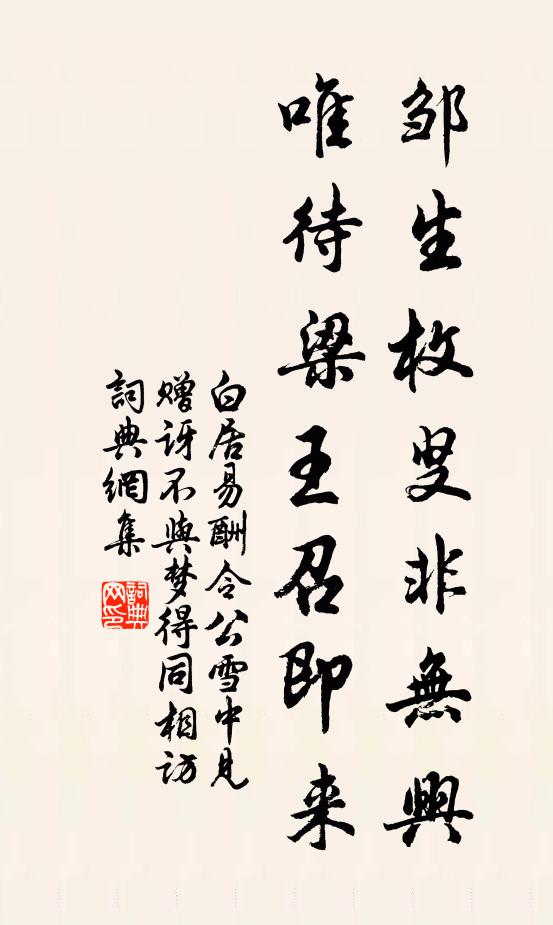 邹生枚叟非無興
唯待梁王召即来
白居易酬令公雪中見
赠讶不與梦得同相访
詞典網集
詞典
网印